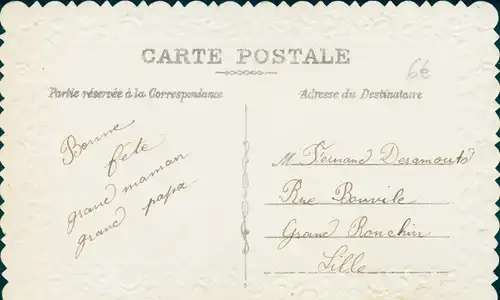 CARTE POSTALE
6€
Partie réservée à la Correspondance
Adresse du Destinataire
Bonne
fête
grand maman
grand papa
M Fernand Deramoutd
Rue Benvile
Grand Ronchin
Lille